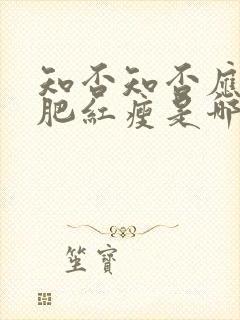 知否知否應
肥紅瘦是哪
坐寶